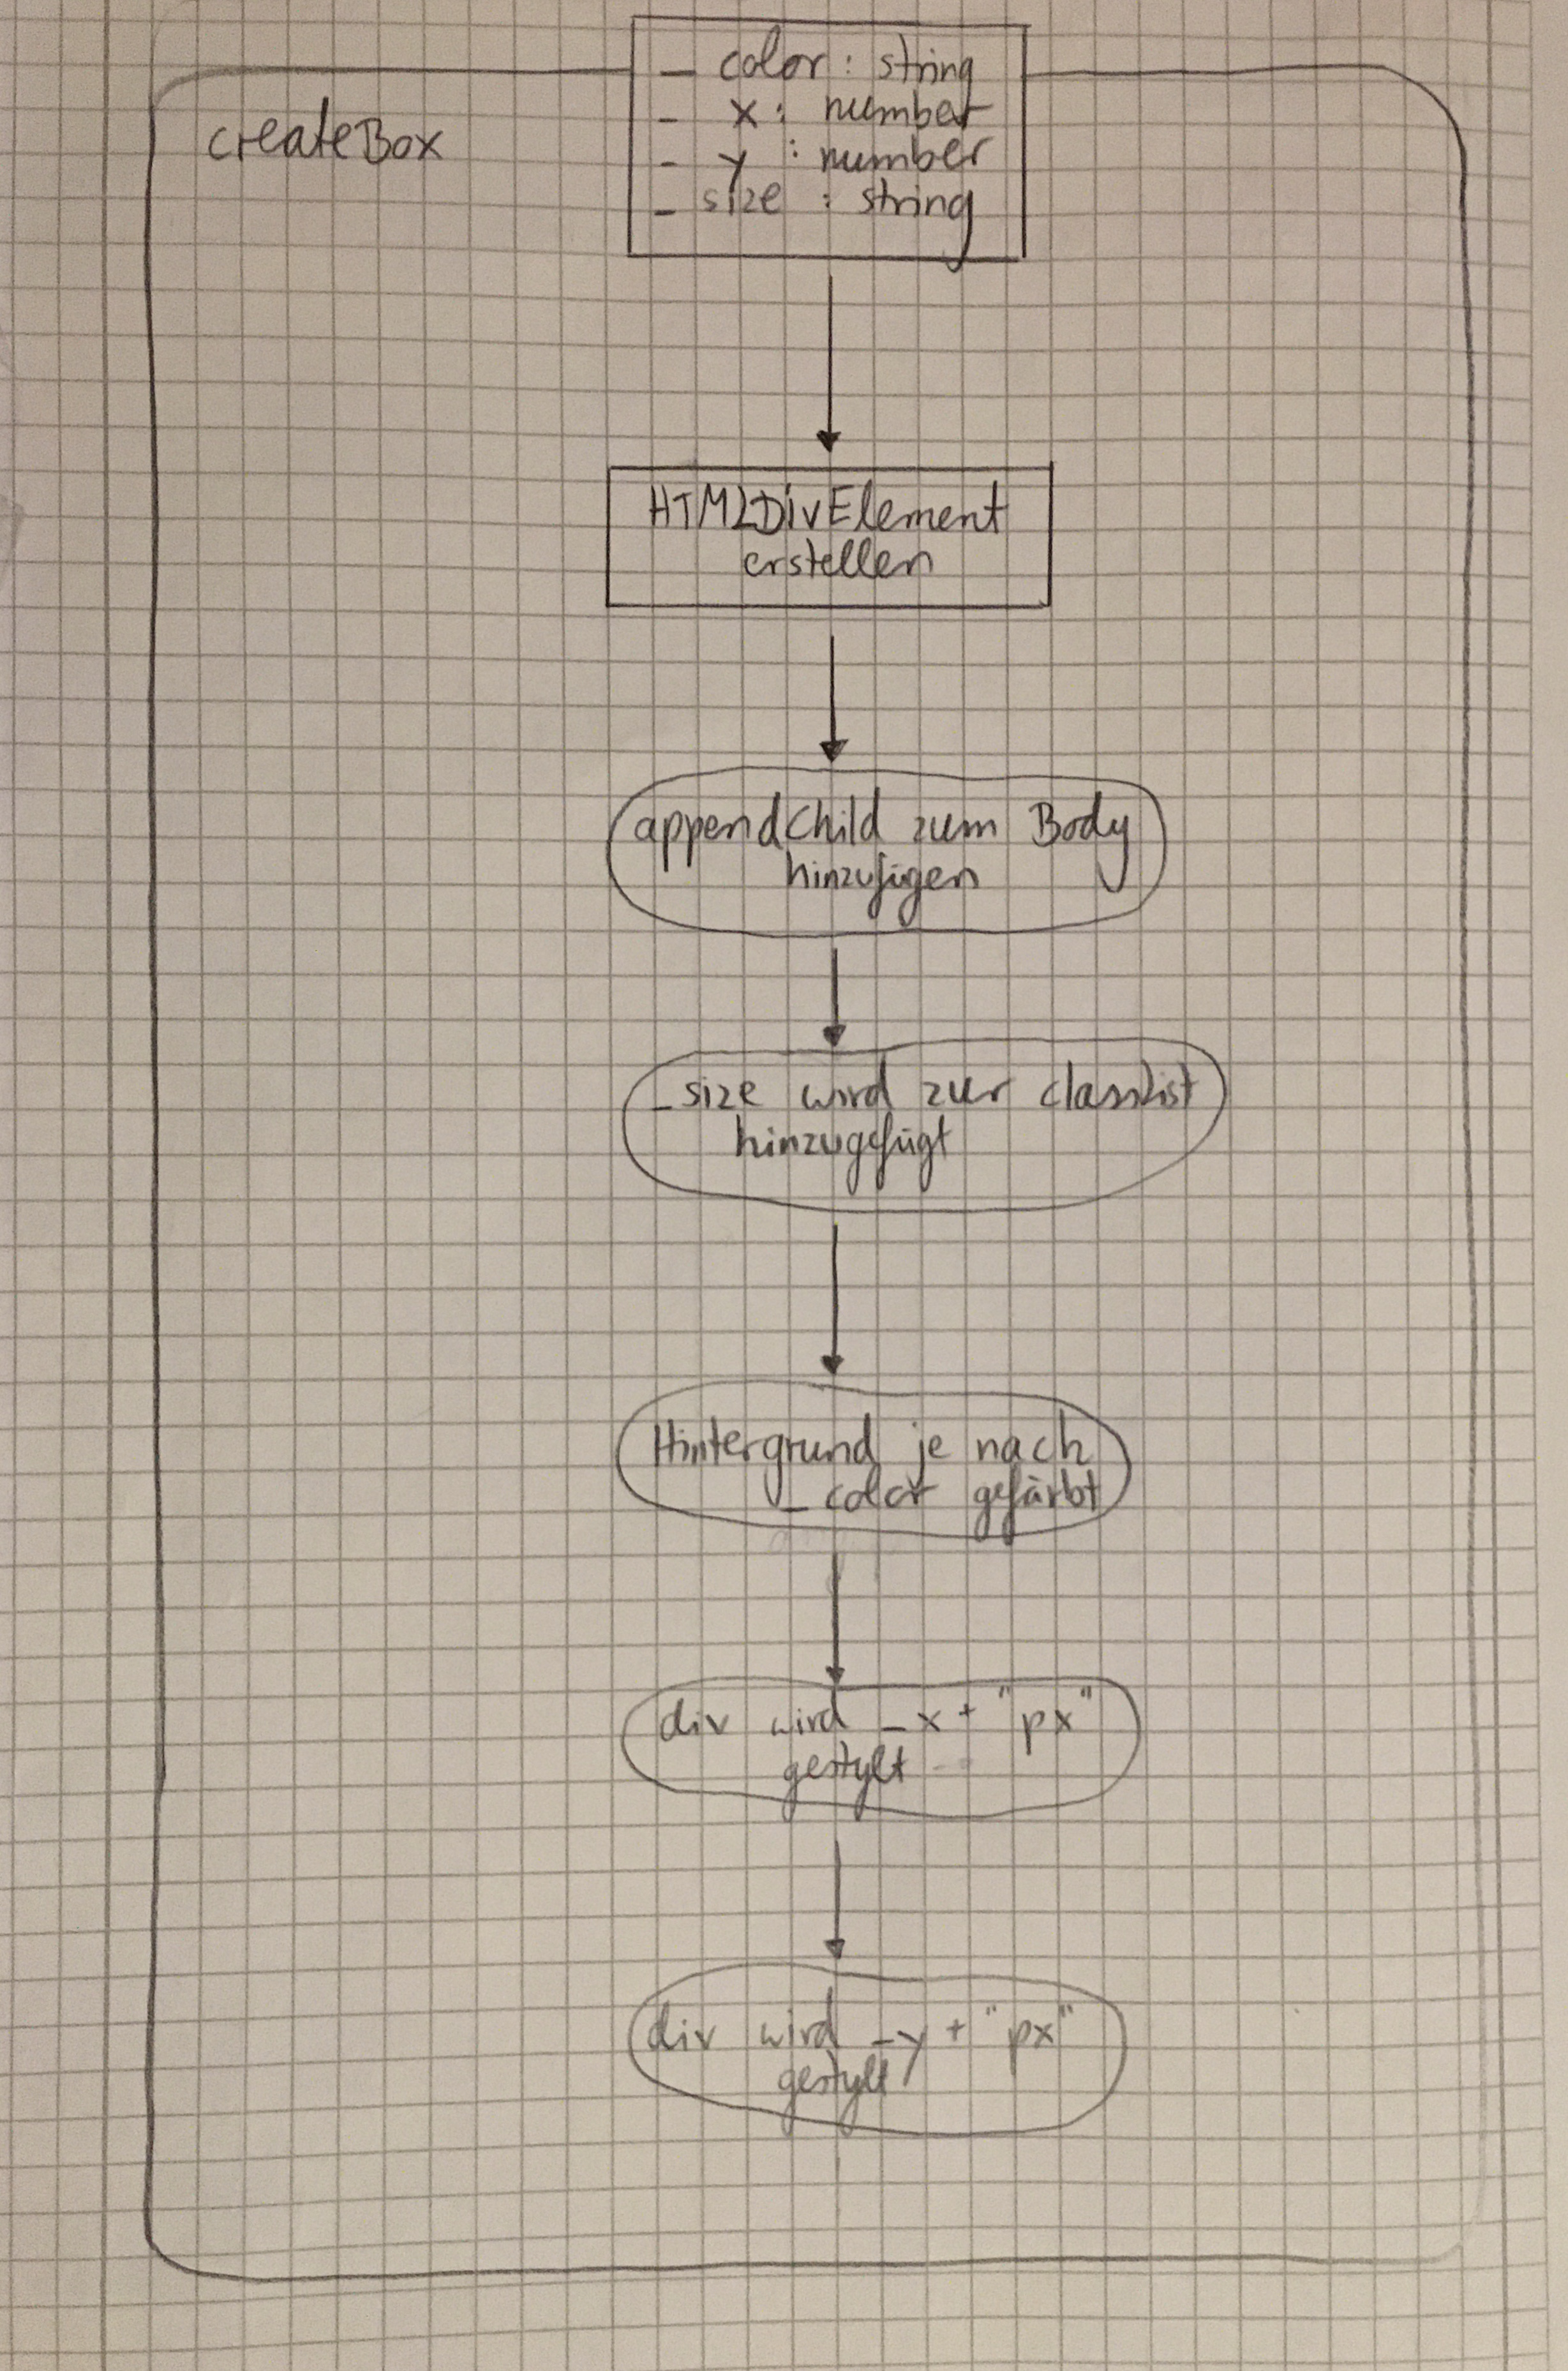 createBox
_ color : string
_ x : number
_ y : number
_ size : string
HTMLDivElement
erstellen
appendChild zum Body
hinzufügen
_size wird zur classList
hinzugefügt
Hintergrund je nach
_color gefärbt
div wird _x + "px"
gestylt
div wird _y + "px"
gestylt